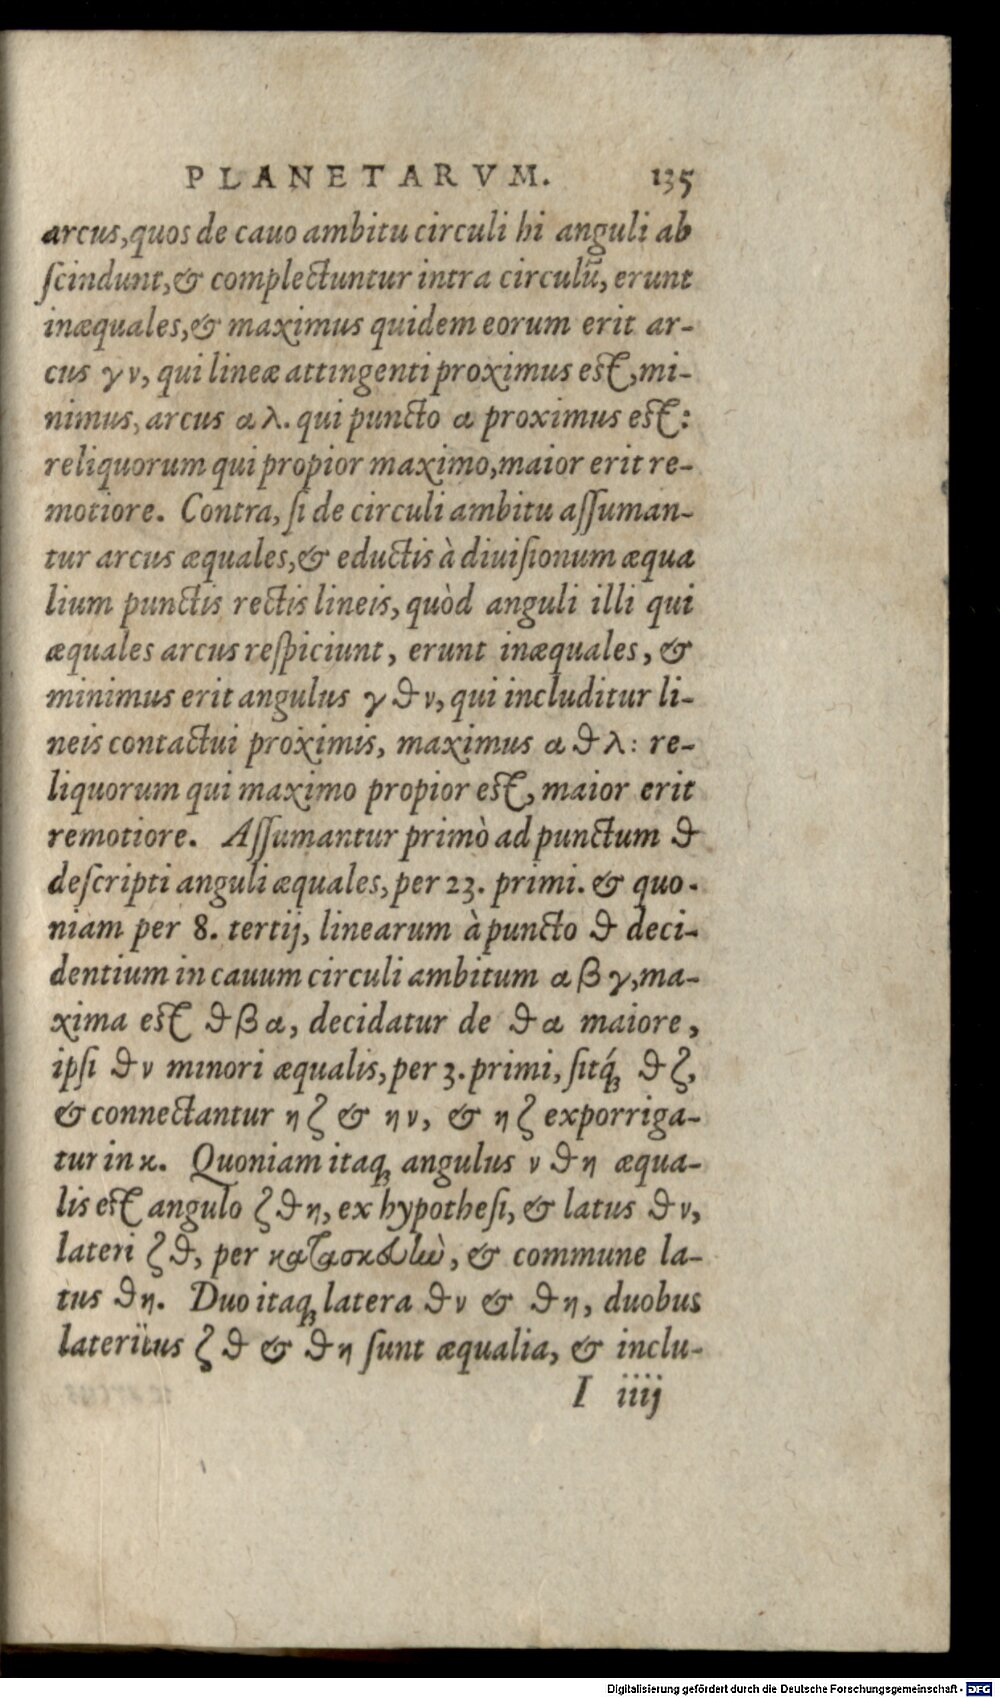 PLANETARVM. 135
arcus, quos de cauo ambitu circuli hi anguli ab
ſcindunt, & complectuntur intra circulū, erunt
inæquales, & maximus quidem eorum erit ar-
cus γ ν, qui lineæ attingenti proximus eſt, mi-
nimus, arcus α λ. qui puncto α proximus eſt:
reliquorum qui propior maximo, maior erit re-
motiore. Contra, ſi de circuli ambitu aſſuman-
tur arcus æquales, & eductis à diuiſionum æqua
lium punctis rectis lineis, quòd anguli illi qui
æquales arcus reſpiciunt, erunt inæquales, &
minimus erit angulus γ δ ν, qui includitur li-
neis contactui proximis, maximus α δ λ: re-
liquorum qui maximo propior eſt, maior erit
remotiore. Aſſumantur primò ad punctum δ
deſcripti anguli æquales, per 23. primi. & quo-
niam per 8. tertij, linearum à puncto δ deci-
dentium in cauum circuli ambitum α β γ, ma-
xima eſt δ β α, decidatur de δ α maiore,
ipſi δ ν minori æqualis, per 3. primi, ſitq́; δ ζ,
& connectantur η ζ & η ν, & η ζ exporriga-
tur in κ. Quoniam itaq; angulus ν δ η æqua-
lis eſt angulo ζ δ η, ex hypotheſi, & latus δ ν,
lateri ζ δ, per κατασκευὼ, & commune la-
tus δ η. Duo itaq; latera δ ν & δ η, duobus
lateribus ζ δ & δ η ſunt æqualia, & inclu-
I iiij
Digitalisierung gefördert durch die Deutsche Forschungsgemeinschaft - DFG